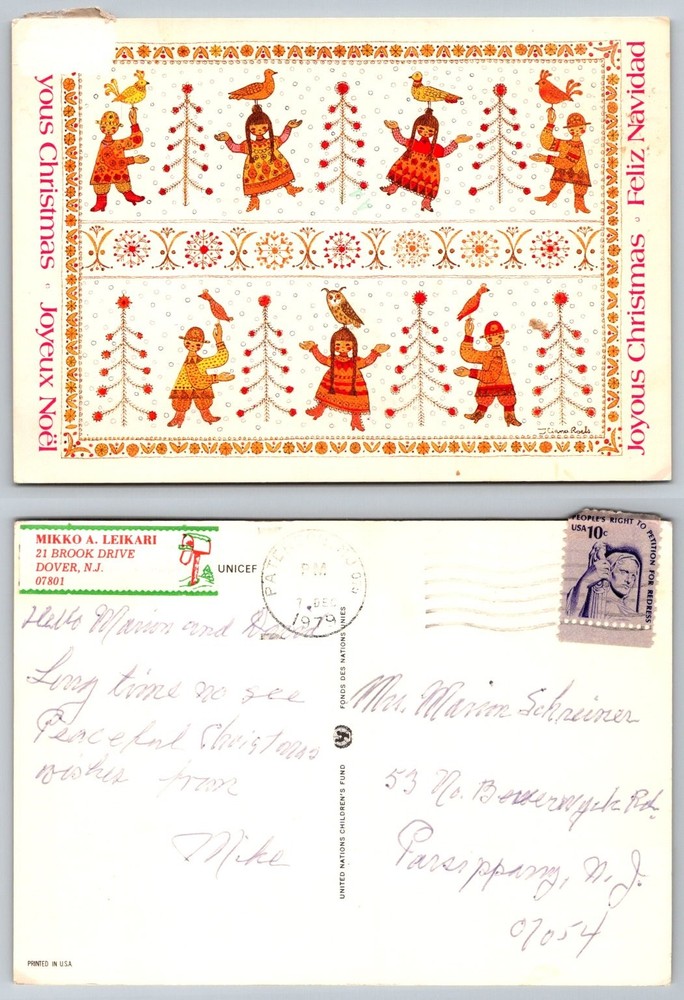 yous Christmas · Joyeux Noël
Joyous Christmas · Feliz Navidad
MIKKO A. LEIKARI
21 BROOK DRIVE
DOVER, N.J.
07801
UNICEF
PM
7 DEC
1979
PEOPLE'S RIGHT TO PETITION FOR REDRESS
USA 10c
Hello Marion and David
Long time no see
Peaceful Christmas
wishes from
Mike
FONDS DES NATIONS UNIES
UNITED NATIONS CHILDREN'S FUND
Mrs. Marion Schreiner
53 No. Beverwyck Rd.
Parsippany, N.J.
07054
PRINTED IN U.S.A